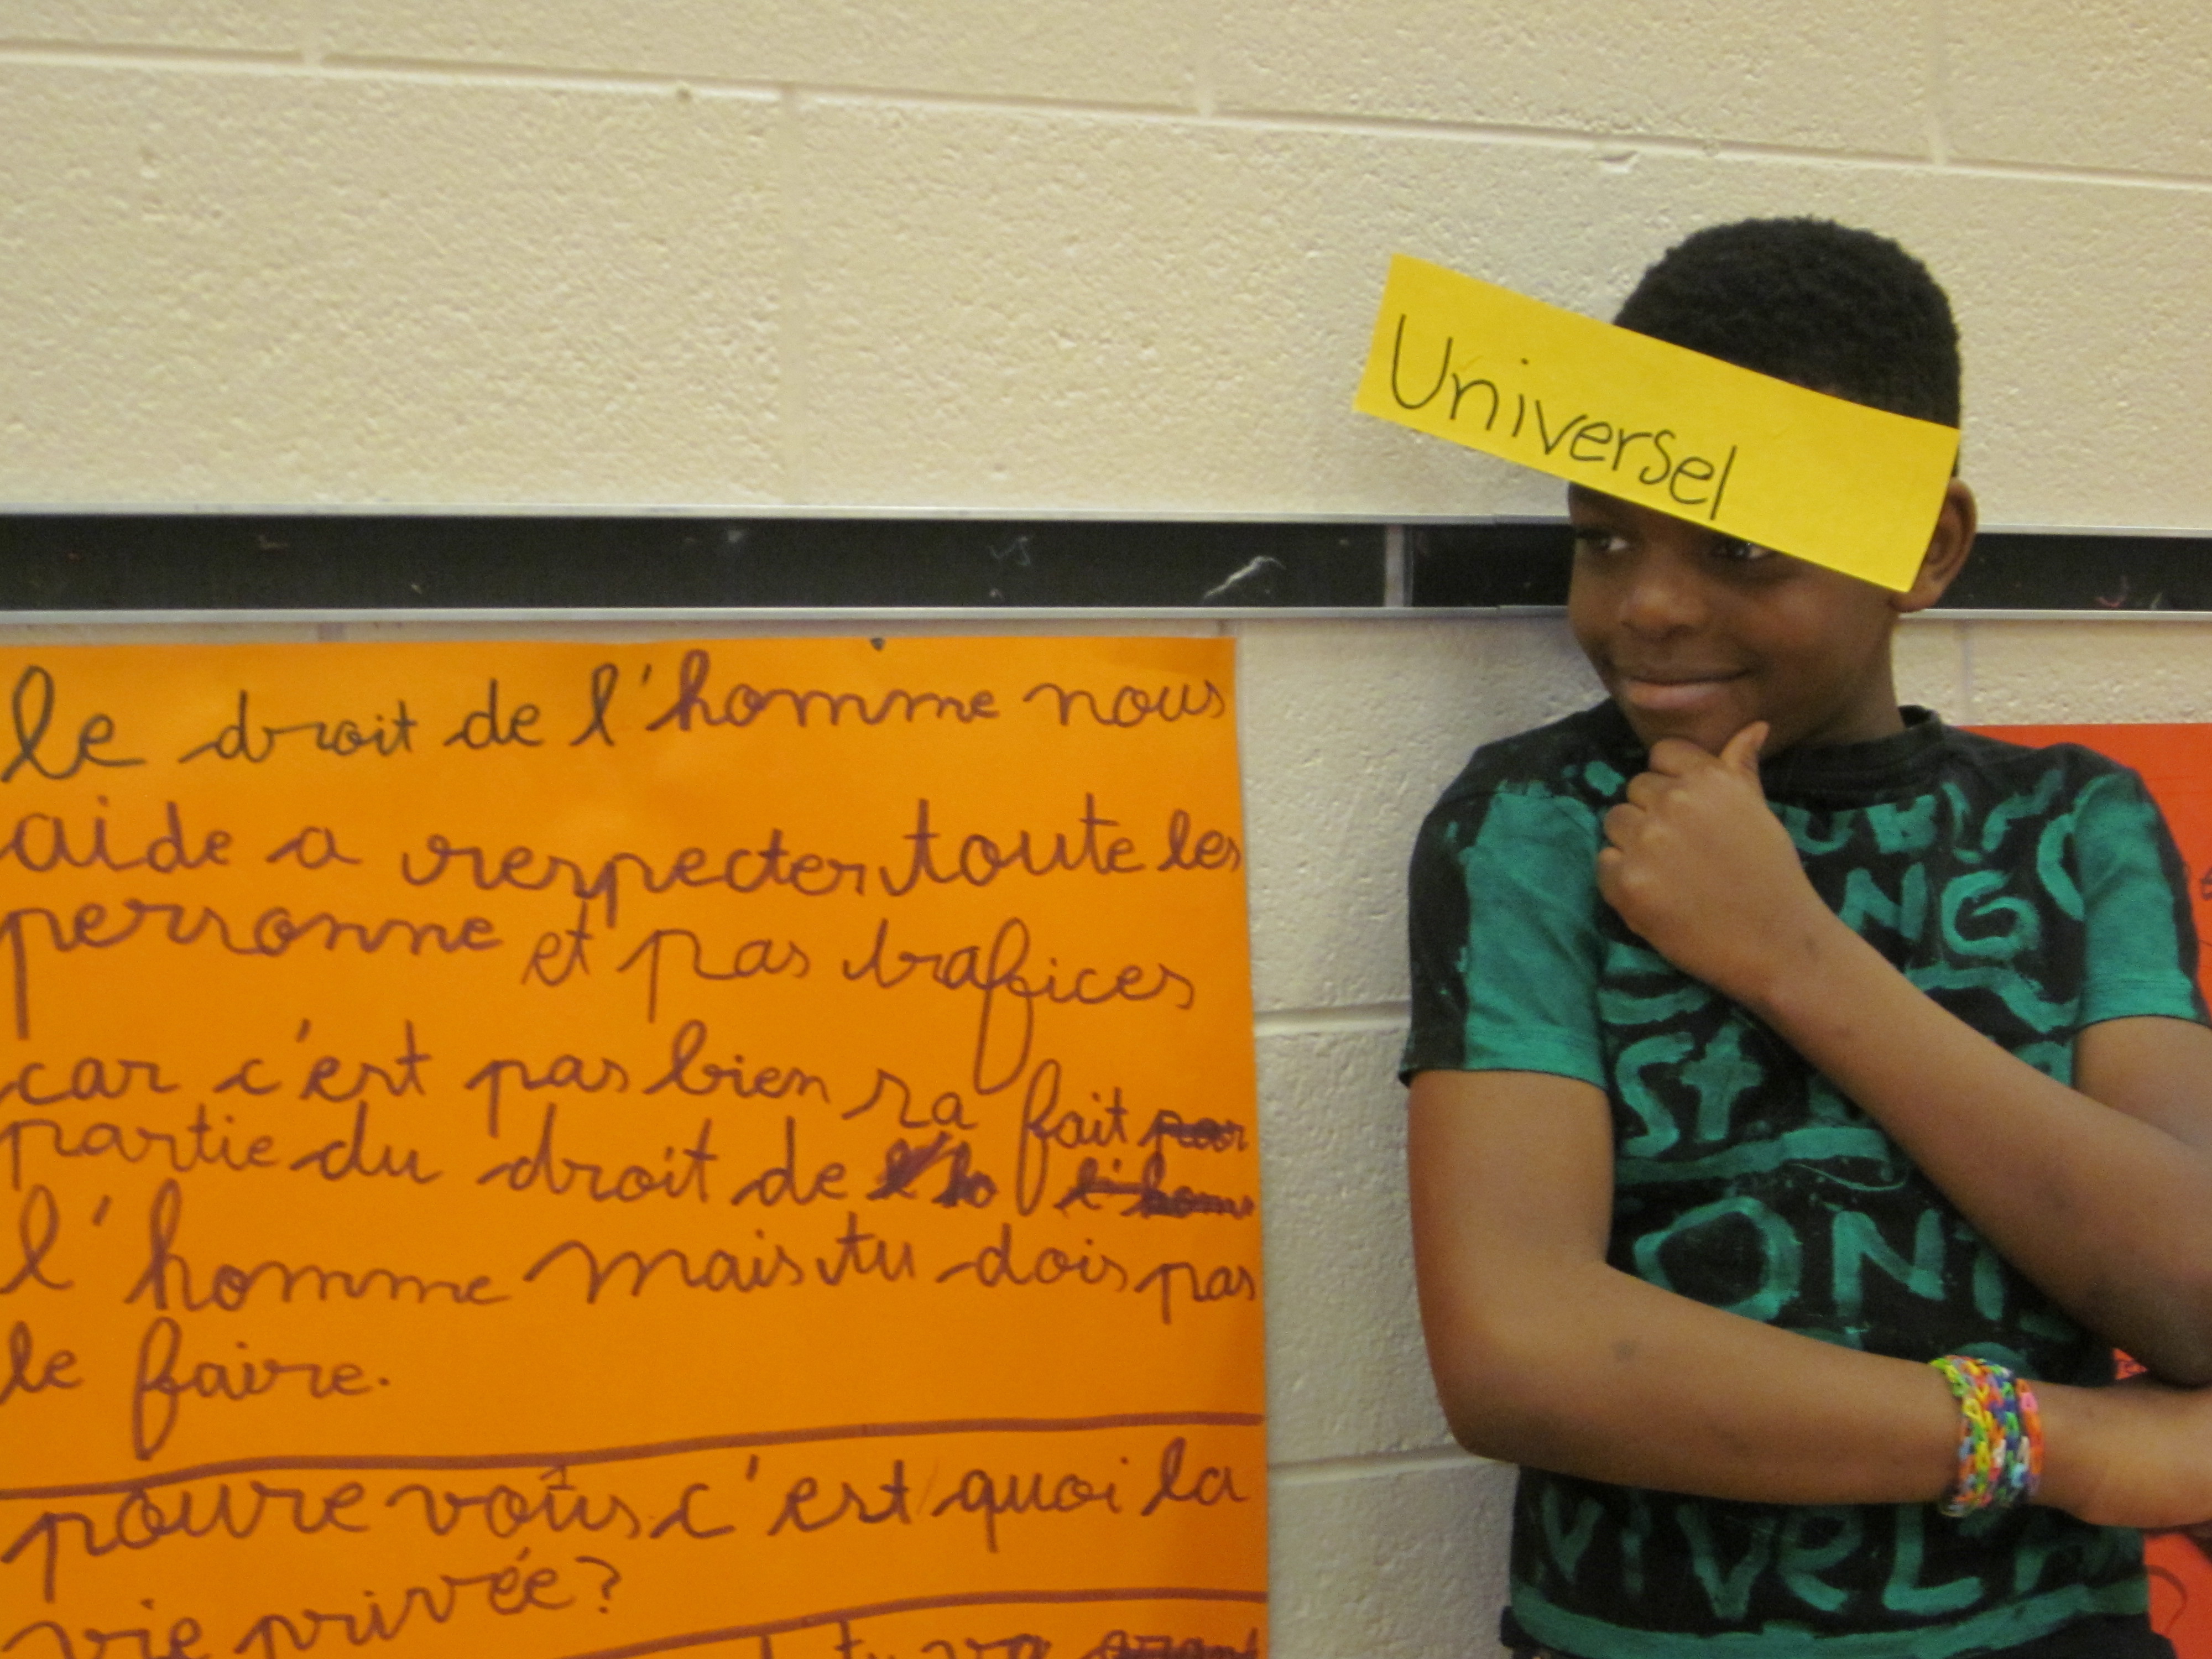 Universel
le droit de l'homme nous
aide a respecter toute les
personne et pas trafices
car c'est pas bien sa fait
partie du droit de
l'homme mais tu dois pas
le faire.
poure vous c'est quoi la
vie privée?
tu va
NG
St
ON
ViVe LA